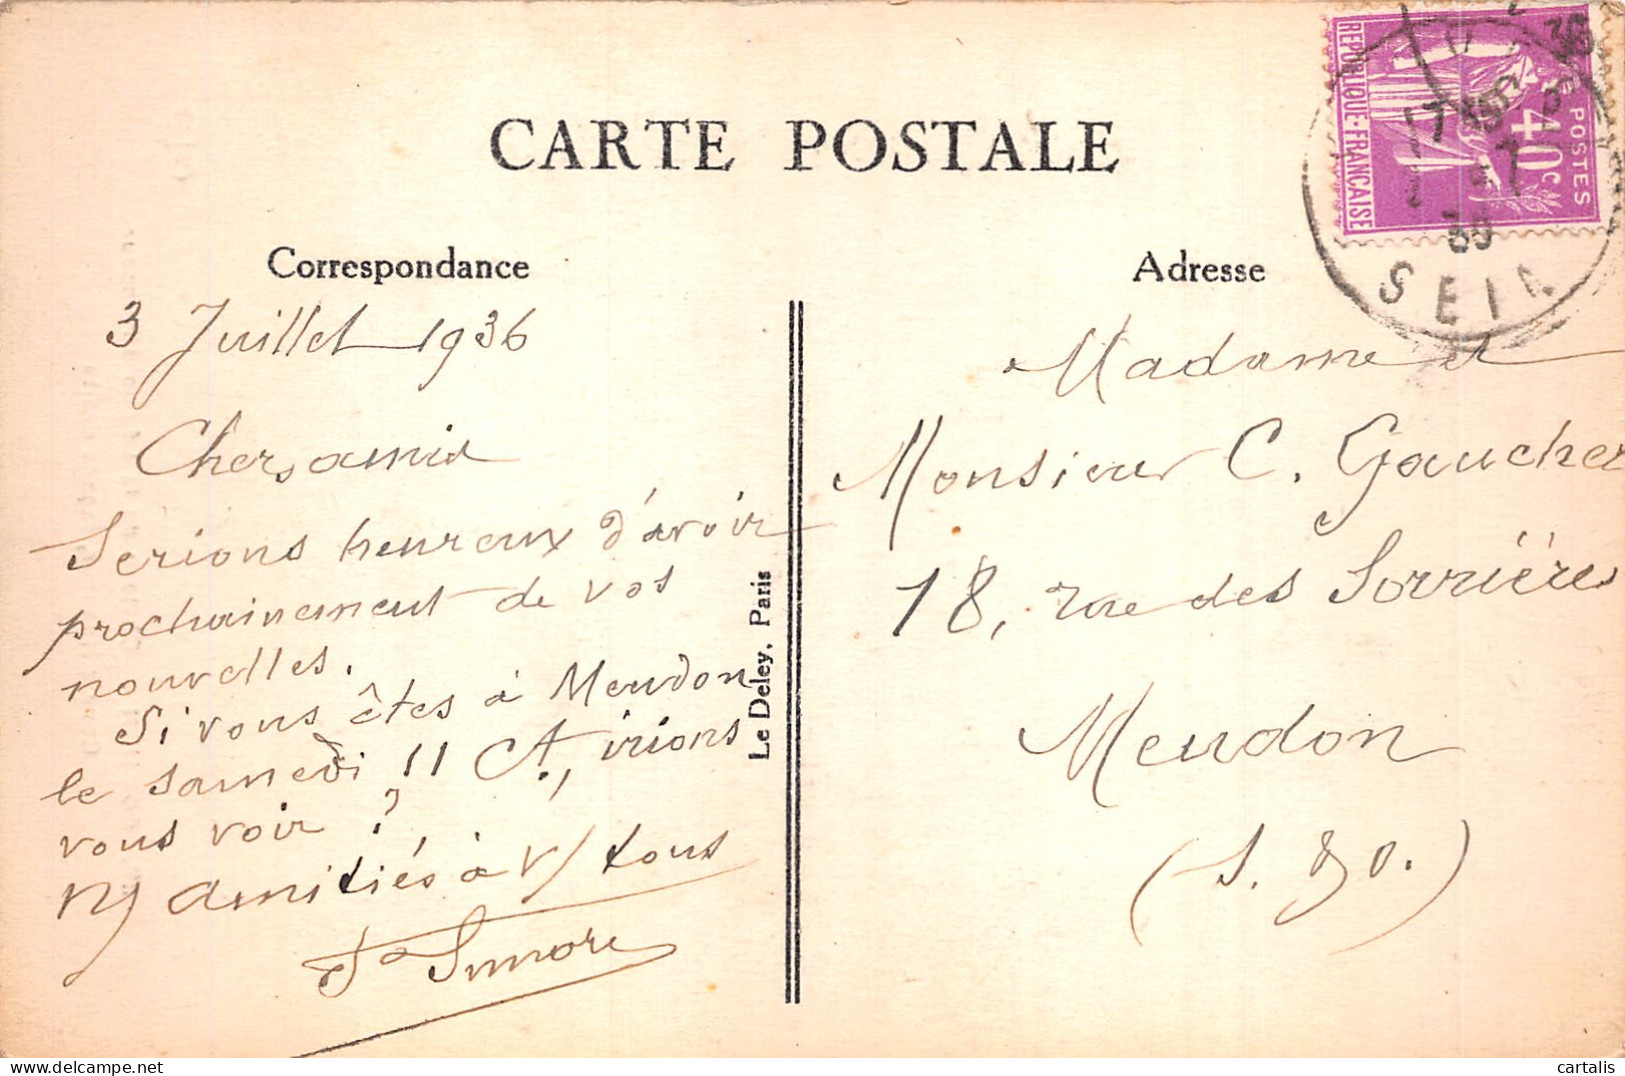 CARTE POSTALE
Correspondance
3 Juillet 1936
Chers amis
Serions heureux d'avoir
prochainement de vos
nouvelles.
Si vous êtes à Meudon
le samedi 11 Ct, irions
vous voir ?
N/ amitiés à v/ tous
Le Deley, Paris
Adresse
Madame et
Monsieur C. Gaucher
18, rue des Sorrières
Meudon
(S. & O.)
REPUBLIQUE-FRANÇAISE
POSTES
40c
17
7
36
SEIN
cartalis